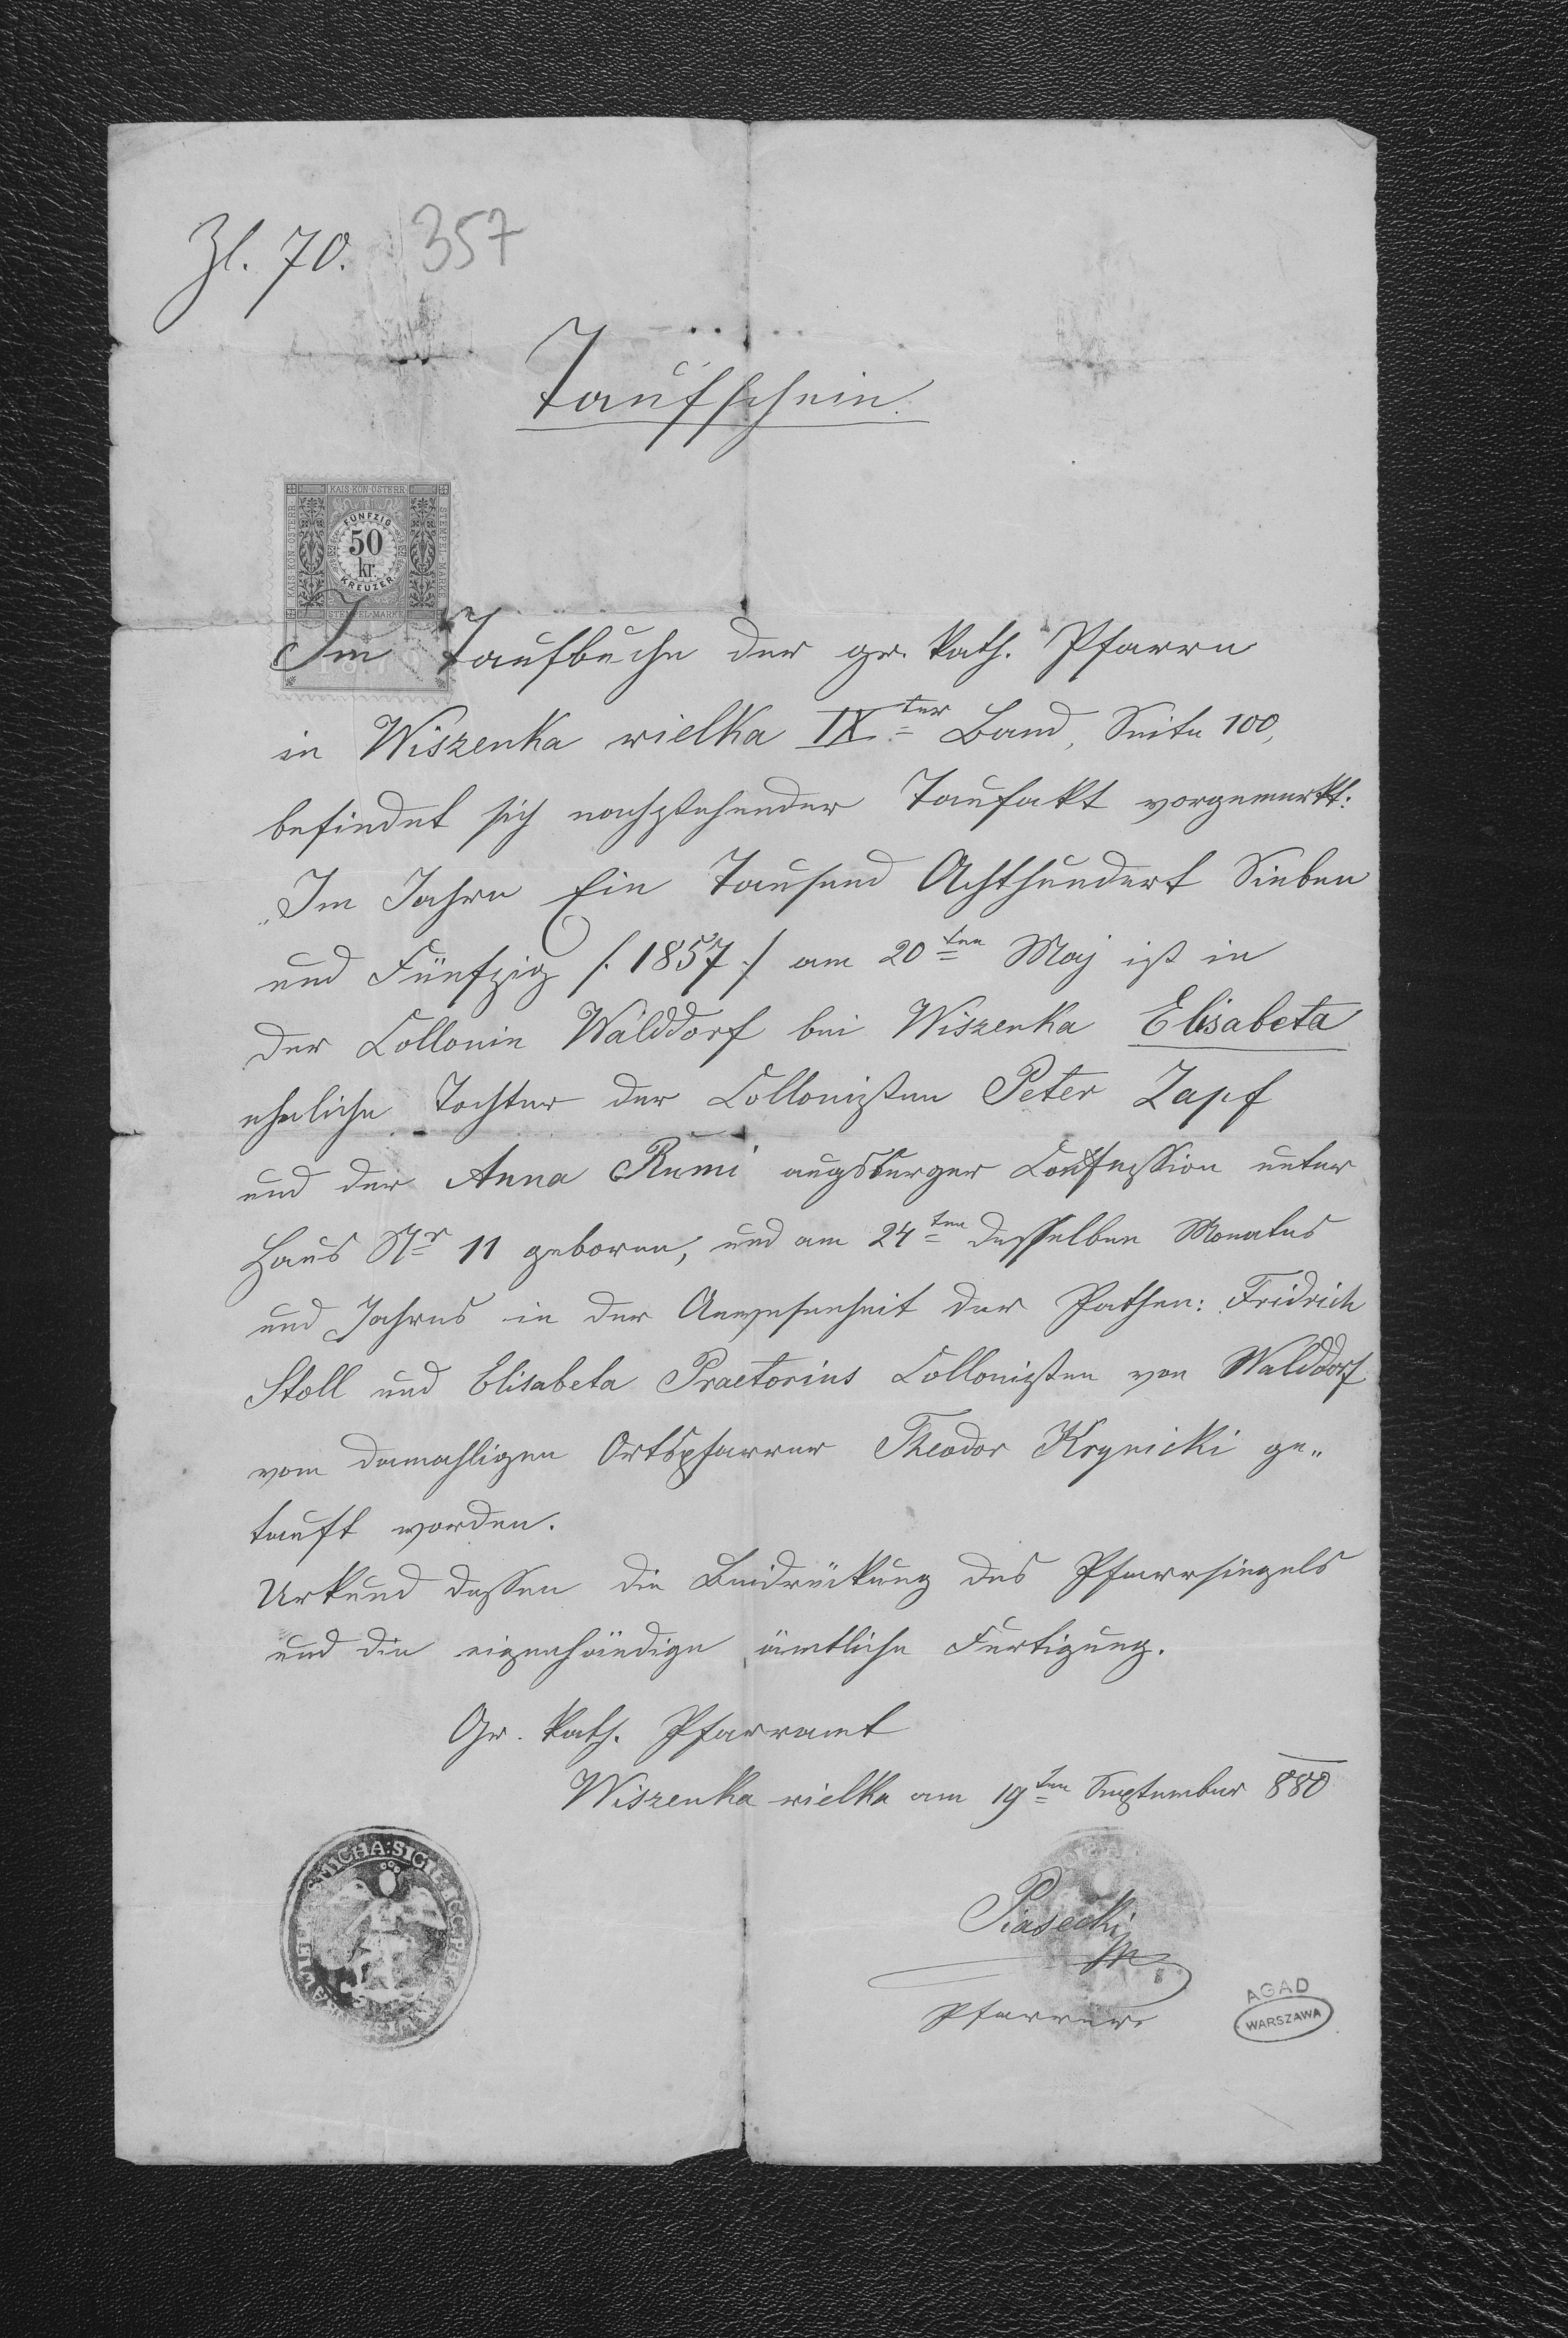 Zl. 70.
357
Taufschein.
KAIS. KÖN. ÖSTERR.
KAIS. KÖN. ÖSTERR.
STEMPEL-MARKE
FÜNFZIG
50
kr.
KREUZER
STEMPEL-MARKE
Im Taufbuche der gr. kath. Pfarre
in Wiszenka wielka IX ter Band, Seite 100,
befindet sich nachstehender Taufakt vorgemerkt:
„Im Jahre Ein Tausend Achthundert Sieben
und Fünfzig /. 1857 ./ am 20ten Maj ist in
der Collonie Walddorf bei Wiszenka Elisabeta
eheliche Tochter der Collonisten Peter Zapf
und der Anna Rumi augsburger Confession unter
Haus Nr 11 geboren, und am 24ten desselben Monates
und Jahres in der Anwesenheit der Pathen: Fridrich
Stoll und Elisabeta Praetorius Collonisten von Walddorf
vom damahligen Ortspfarrer Theodor Krynicki ge„
tauft worden.
Urkund dessen die Beidrückung des Pfarrsiegels
und die eigenhändige ämtliche Fertigung.
Gr. kath. Pfarramt
Wiszenka wielka am 19ten September 880
Piasecki
Pfarrer.
AGAD
WARSZAWA